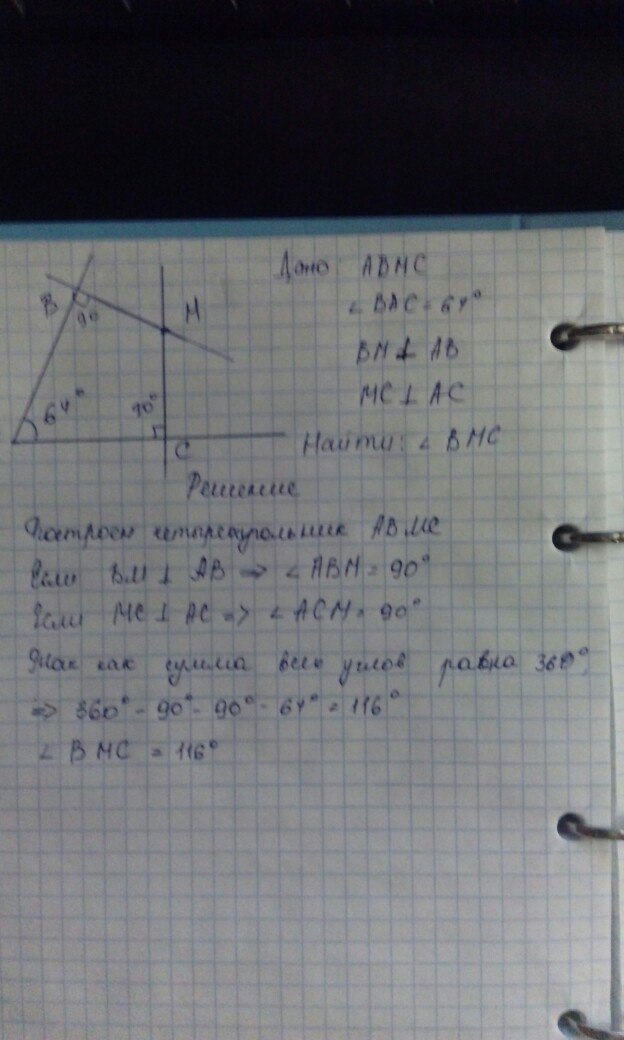 B
90
M
64°
90°
C
Дано: ABMC
∠ BAC = 64°
BM ⊥ AB
MC ⊥ AC
Найти: ∠ BMC
Решение
Построем четырехугольник ABMC
Если BM ⊥ AB => ∠ ABM = 90°
Если MC ⊥ AC => ∠ ACM = 90°
Так как сумма всех углов равна 360°,
=> 360° - 90° - 90° - 64° = 116°
∠ BMC = 116°